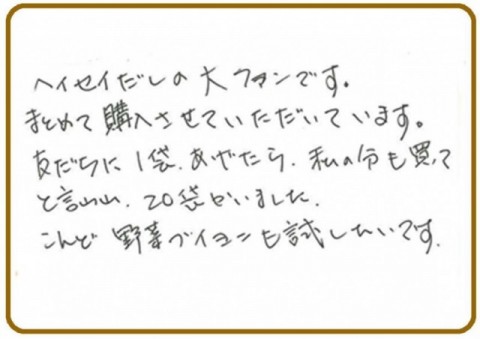 ヘイセイだしの大ファンです。
まとめて購入させていただいています。
友だちに1袋、あげたら、私の分も買って
と言い、20袋かいました。
こんど野菜ブイヨンも試したいです。